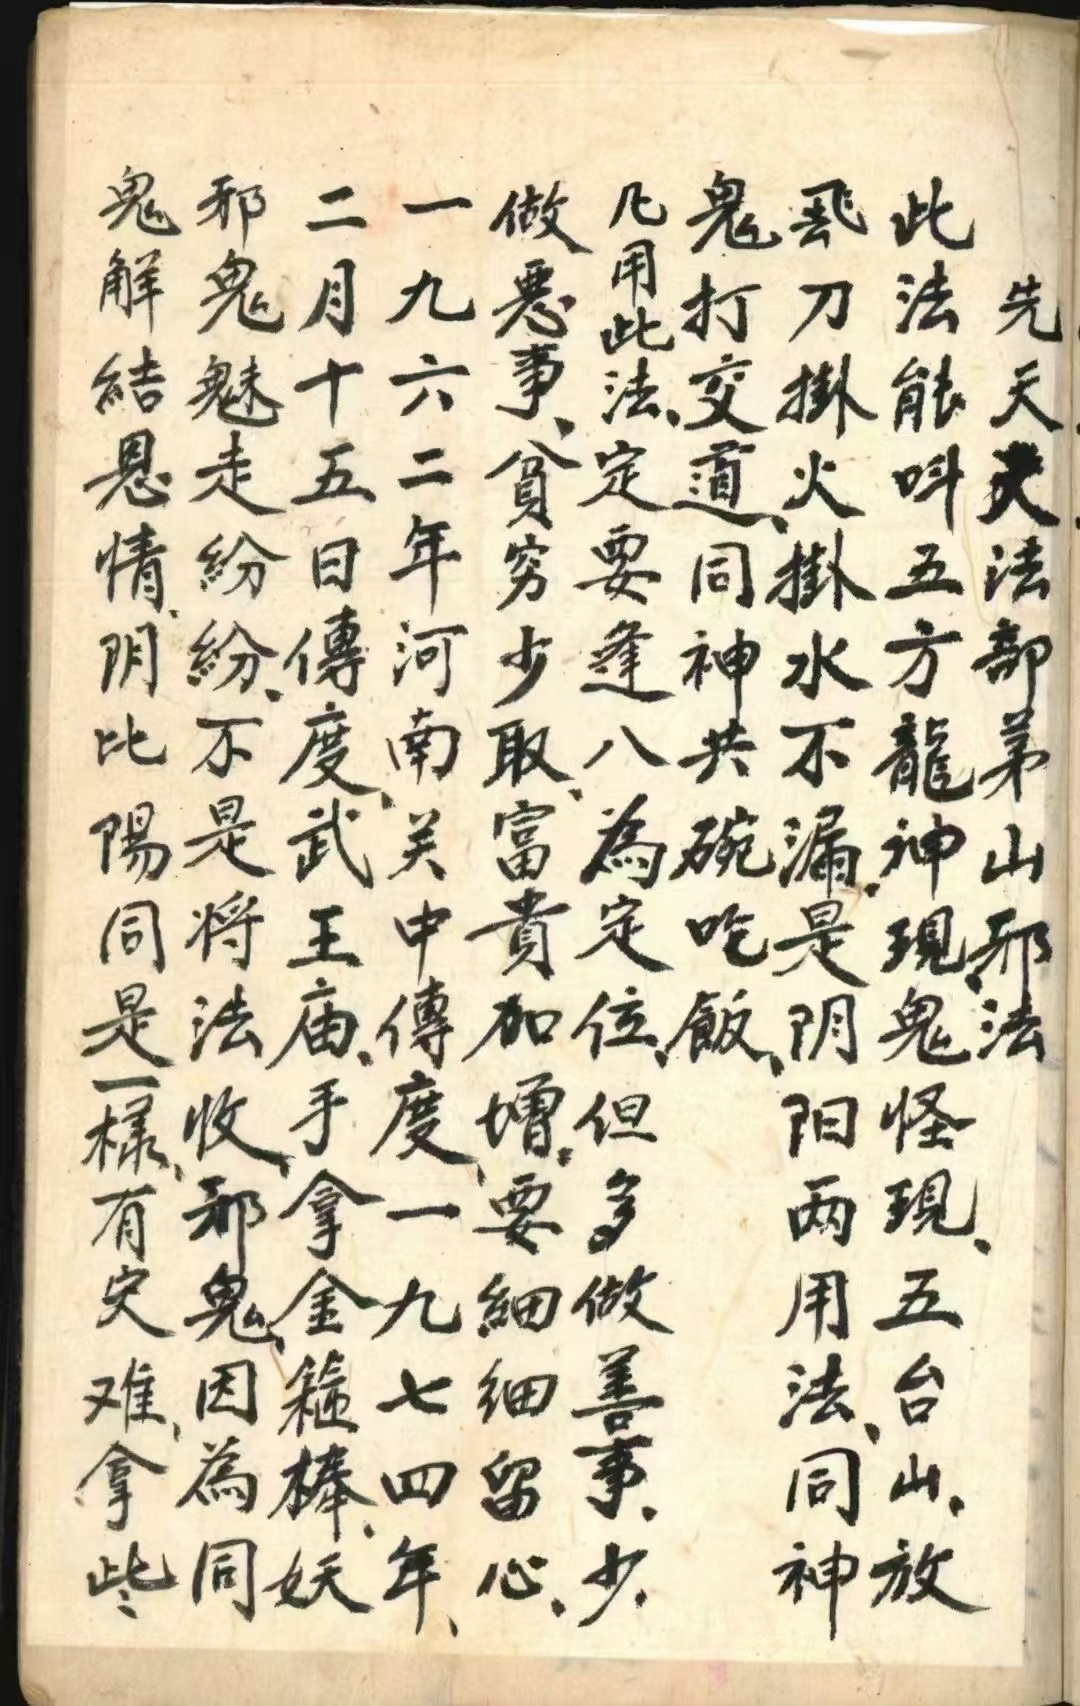 先天天法部茅山邪法
此法能叫五方龍神現、鬼怪現、五台山、放
飛刀掛火掛水不漏、是阴阳两用法、同神
鬼打交道、同神共碗吃飯、
凡用此法、定要逢八為定位、但多做善事、少
做恶事、貧穷少取、富貴加增、要細細留心、
一九六二年河南关中傳度、一九七四年、
二月十五日傳度、武王庙、手拿金箍棒、妖
邪鬼魅走紛紛、不是将法收、邪鬼、因為同
鬼解結恩情、阴比陽同是一樣、有灾难、拿些